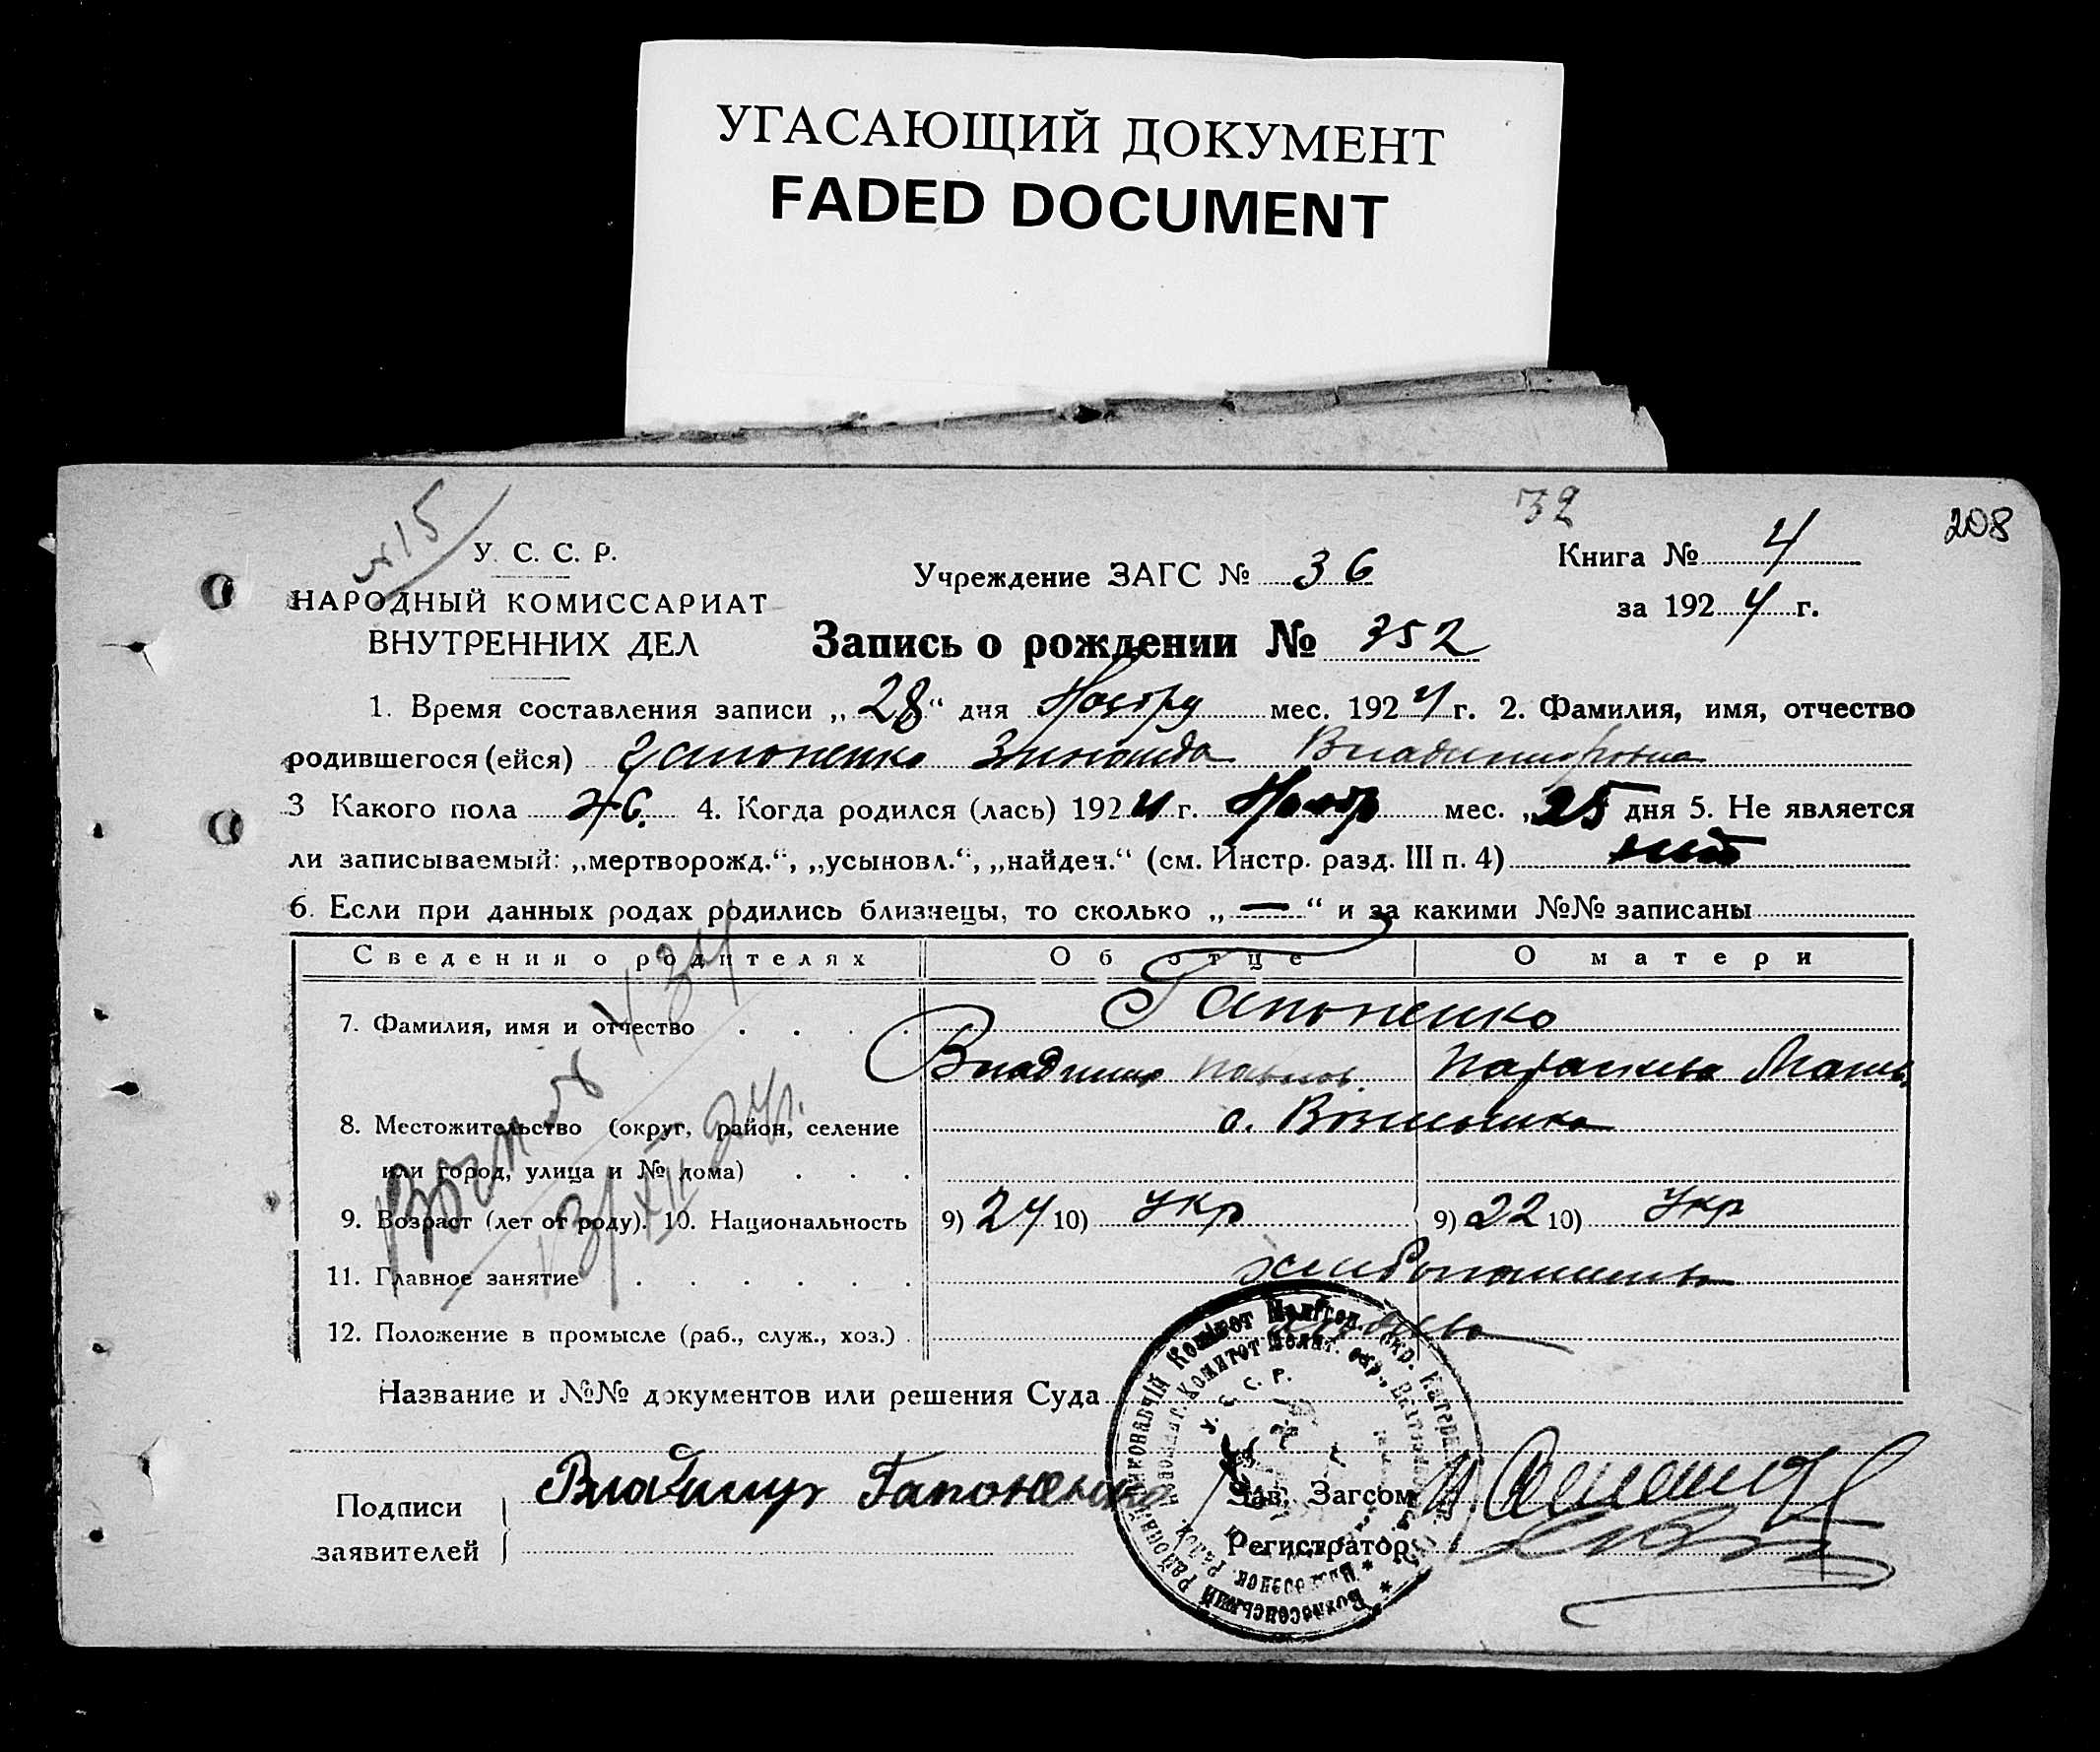 УГАСАЮЩИЙ ДОКУМЕНТ
FADED DOCUMENT
32
208
№15
У. С. С. Р.
НАРОДНЫЙ КОМИССАРИАТ
ВНУТРЕННИХ ДЕЛ
Учреждение ЗАГС № 36
Книга № 4
за 1924 г.
Запись о рождении № 352
1. Время составления записи „28" дня Ноябру мес. 1924 г. 2. Фамилия, имя, отчество
родившегося (ейся) Гапоненко Зинаида Владимировна
3 Какого пола Ж. 4. Когда родился (лась) 1924 г. Ноябр мес. „25 дня 5. Не является
ли записываемый: „мертворожд.", „усыновл.", „найден." (см. Инстр. разд. III п. 4) нет
6. Если при данных родах родились близнецы, то сколько „—" и за какими №№ записаны
Сведения о родителях Об отце О матери
7. Фамилия, имя и отчество Гапоненко
Владимир Павлов. Параскева
8. Местожительство (округ, район, селение
или город, улица и № дома)
9. Возраст (лет от роду). 10. Национальность 9) 24 10) Укр 9) 22 10) Укр
11. Главное занятие хлебопашест
12. Положение в промысле (раб., служ., хоз.)
Название и №№ документов или решения Суда
Подписи
заявителей
Владимир Гапоненко
Зав. Загсом
Регистратор
У. С. С. Р.